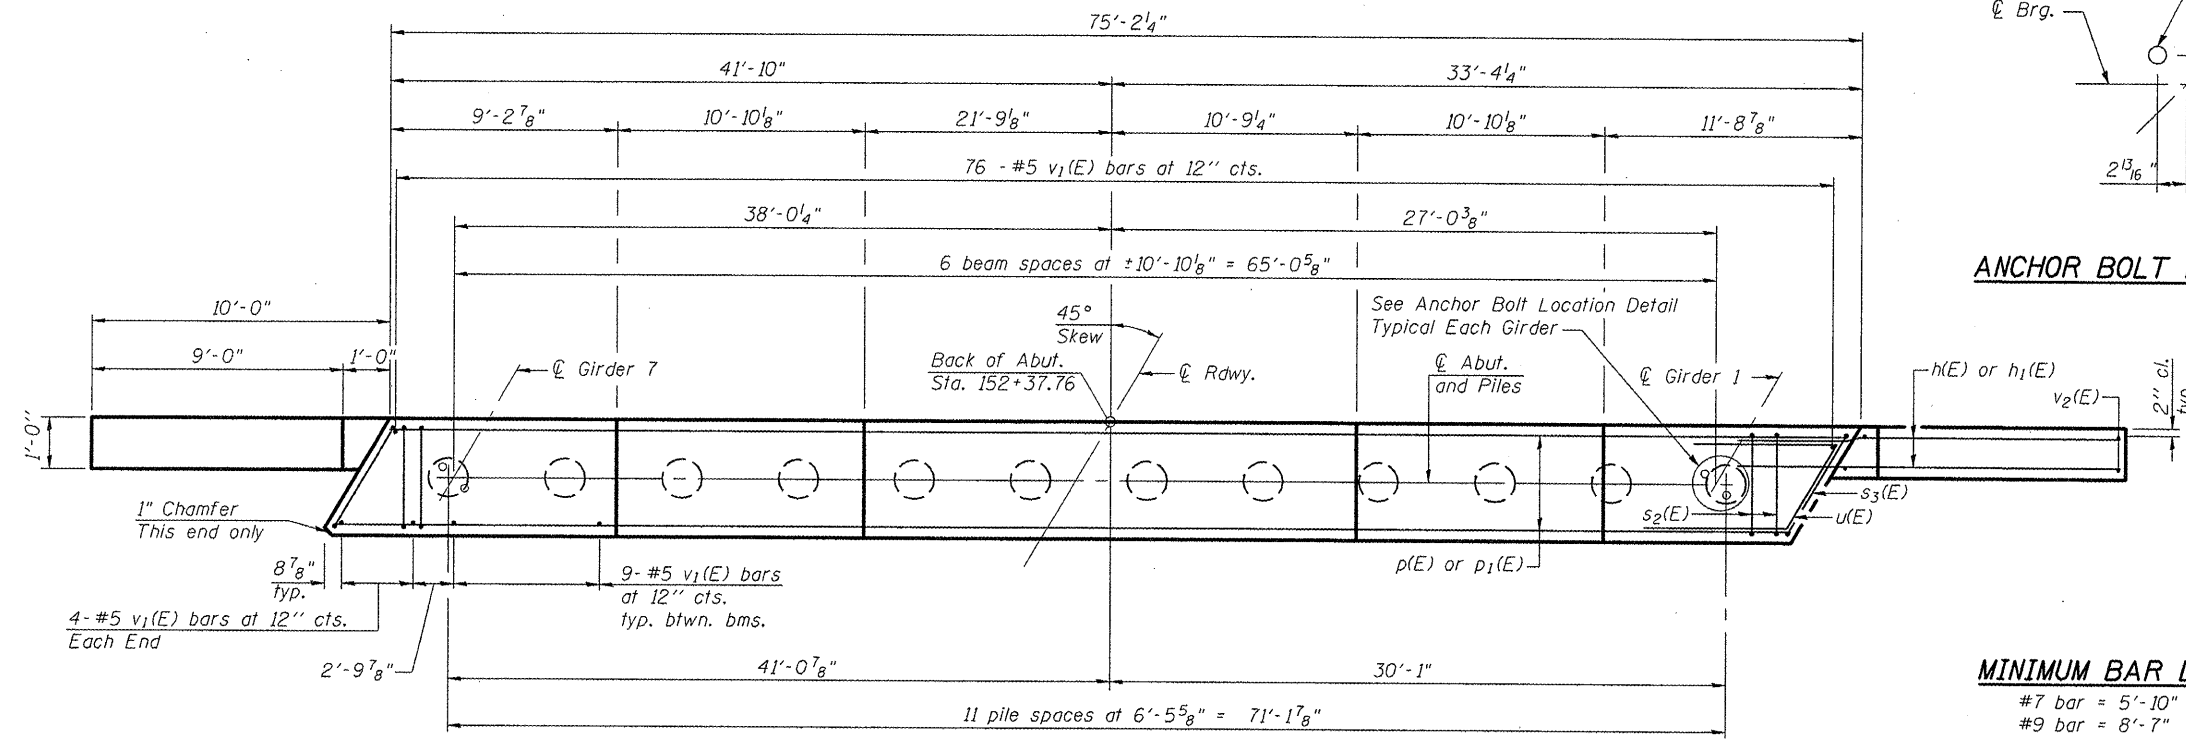 75'-2 1/4"
41'-10"
33'-4 1/4"
9'-2 7/8"
10'-10 1/8"
21'-9 1/8"
10'-9 1/4"
10'-10 1/8"
11'-8 7/8"
76 - #5 v1(E) bars at 12'' cts.
38'-0 1/4"
27'-0 3/8"
6 beam spaces at ±10'-10 1/8" = 65'-0 5/8"
10'-0"
9'-0"
1'-0"
1'-0"
℄ Girder 7
45°
Skew
Back of Abut.
Sta. 152+37.76
℄ Rdwy.
See Anchor Bolt Location Detail
Typical Each Girder
℄ Abut.
and Piles
℄ Girder 1
h(E) or h1(E)
v2(E)
2'' cl.
typ.
1" Chamfer
This end only
s2(E)
s3(E)
u(E)
p(E) or p1(E)
8 7/8"
typ.
4- #5 v1(E) bars at 12'' cts.
Each End
2'-9 7/8"
9- #5 v1(E) bars
at 12'' cts.
typ. btwn. bms.
41'-0 7/8"
30'-1"
11 pile spaces at 6'-5 5/8" = 71'-1 7/8"
℄ Brg.
2 13/16 "
ANCHOR BOLT
MINIMUM BAR
#7 bar = 5'-10"
#9 bar = 8'-7"